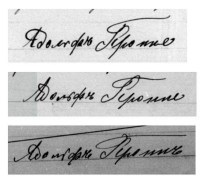 Адольфъ Перонне
Адольфъ Перонне
Адольфъ Перонне